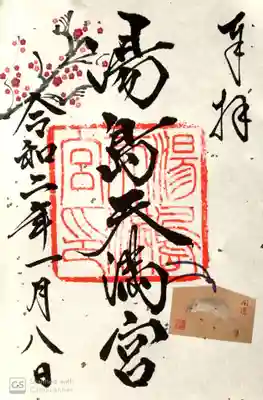 奉拝
湯島天満宮
令和二年一月八日
開運
Scanned with
CamScanner